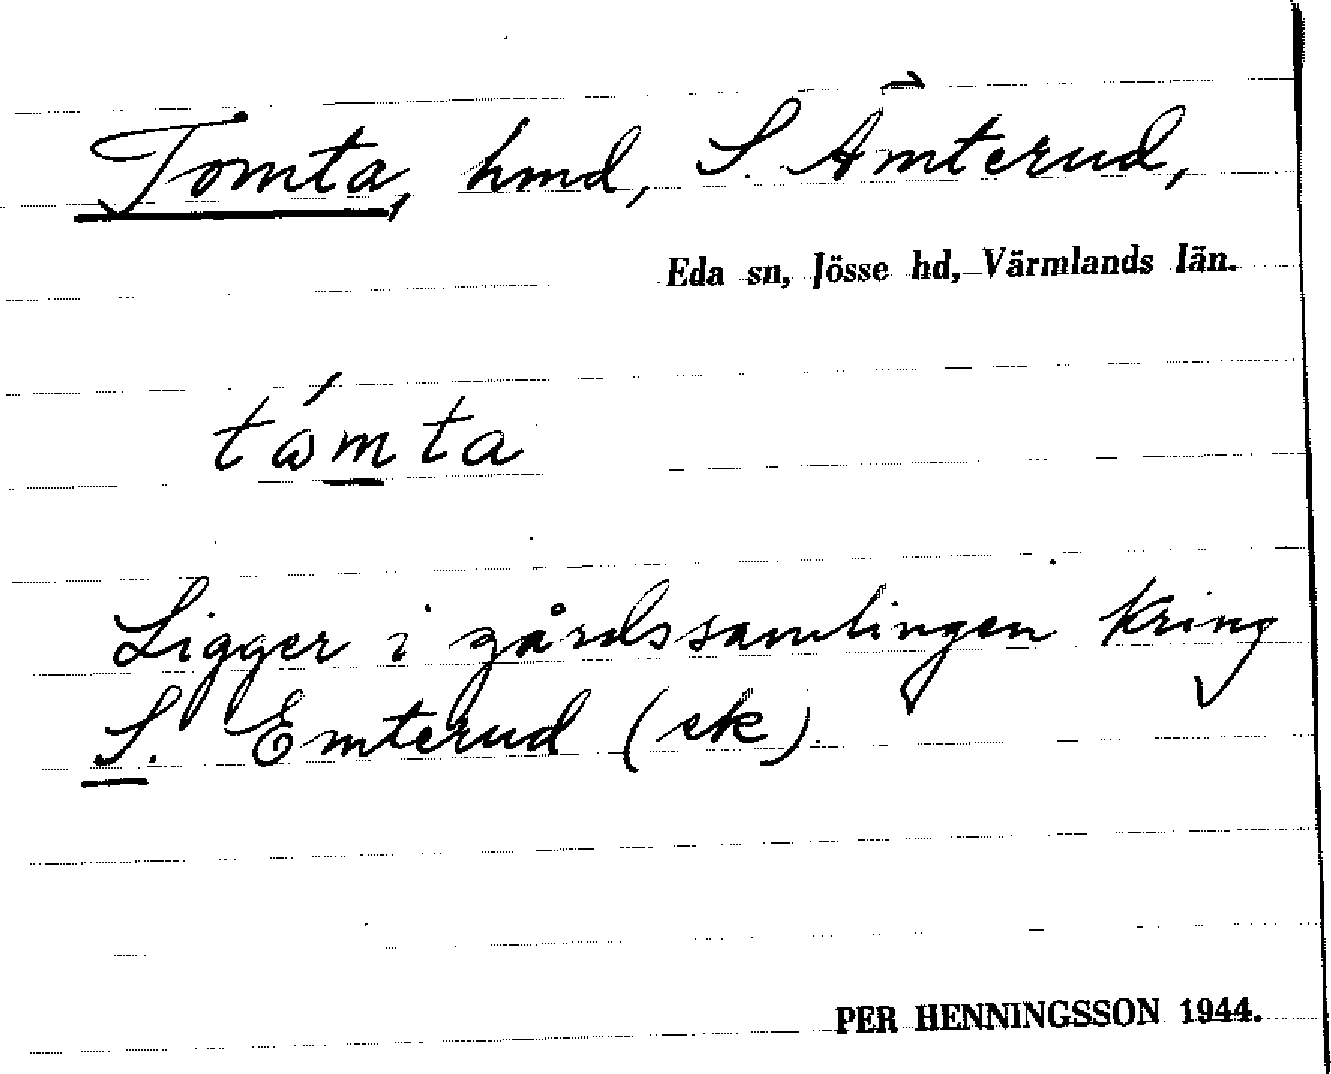 Tomta, hmd, S. Ämterud,
Eda sn, Jösse hd, Värmlands län.
tǻmta
Ligger i gårdssamlingen kring
S. Emterud (ek).
PER HENNINGSSON 1944.